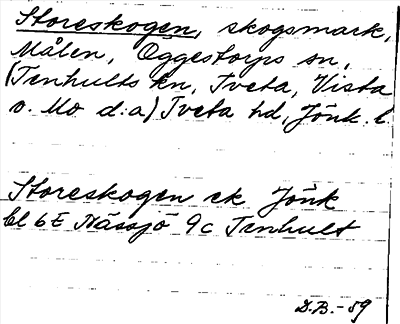 Storeskogen, skogsmark,
Målen, Oggestorps sn,
(Tenhults kn, Tveta, Vista
o. Mo d:a) Tveta hd, Jönk. l.
Storeskogen ek Jönk
bl 6E Nässjö 9c Tenhult
D.B.-59